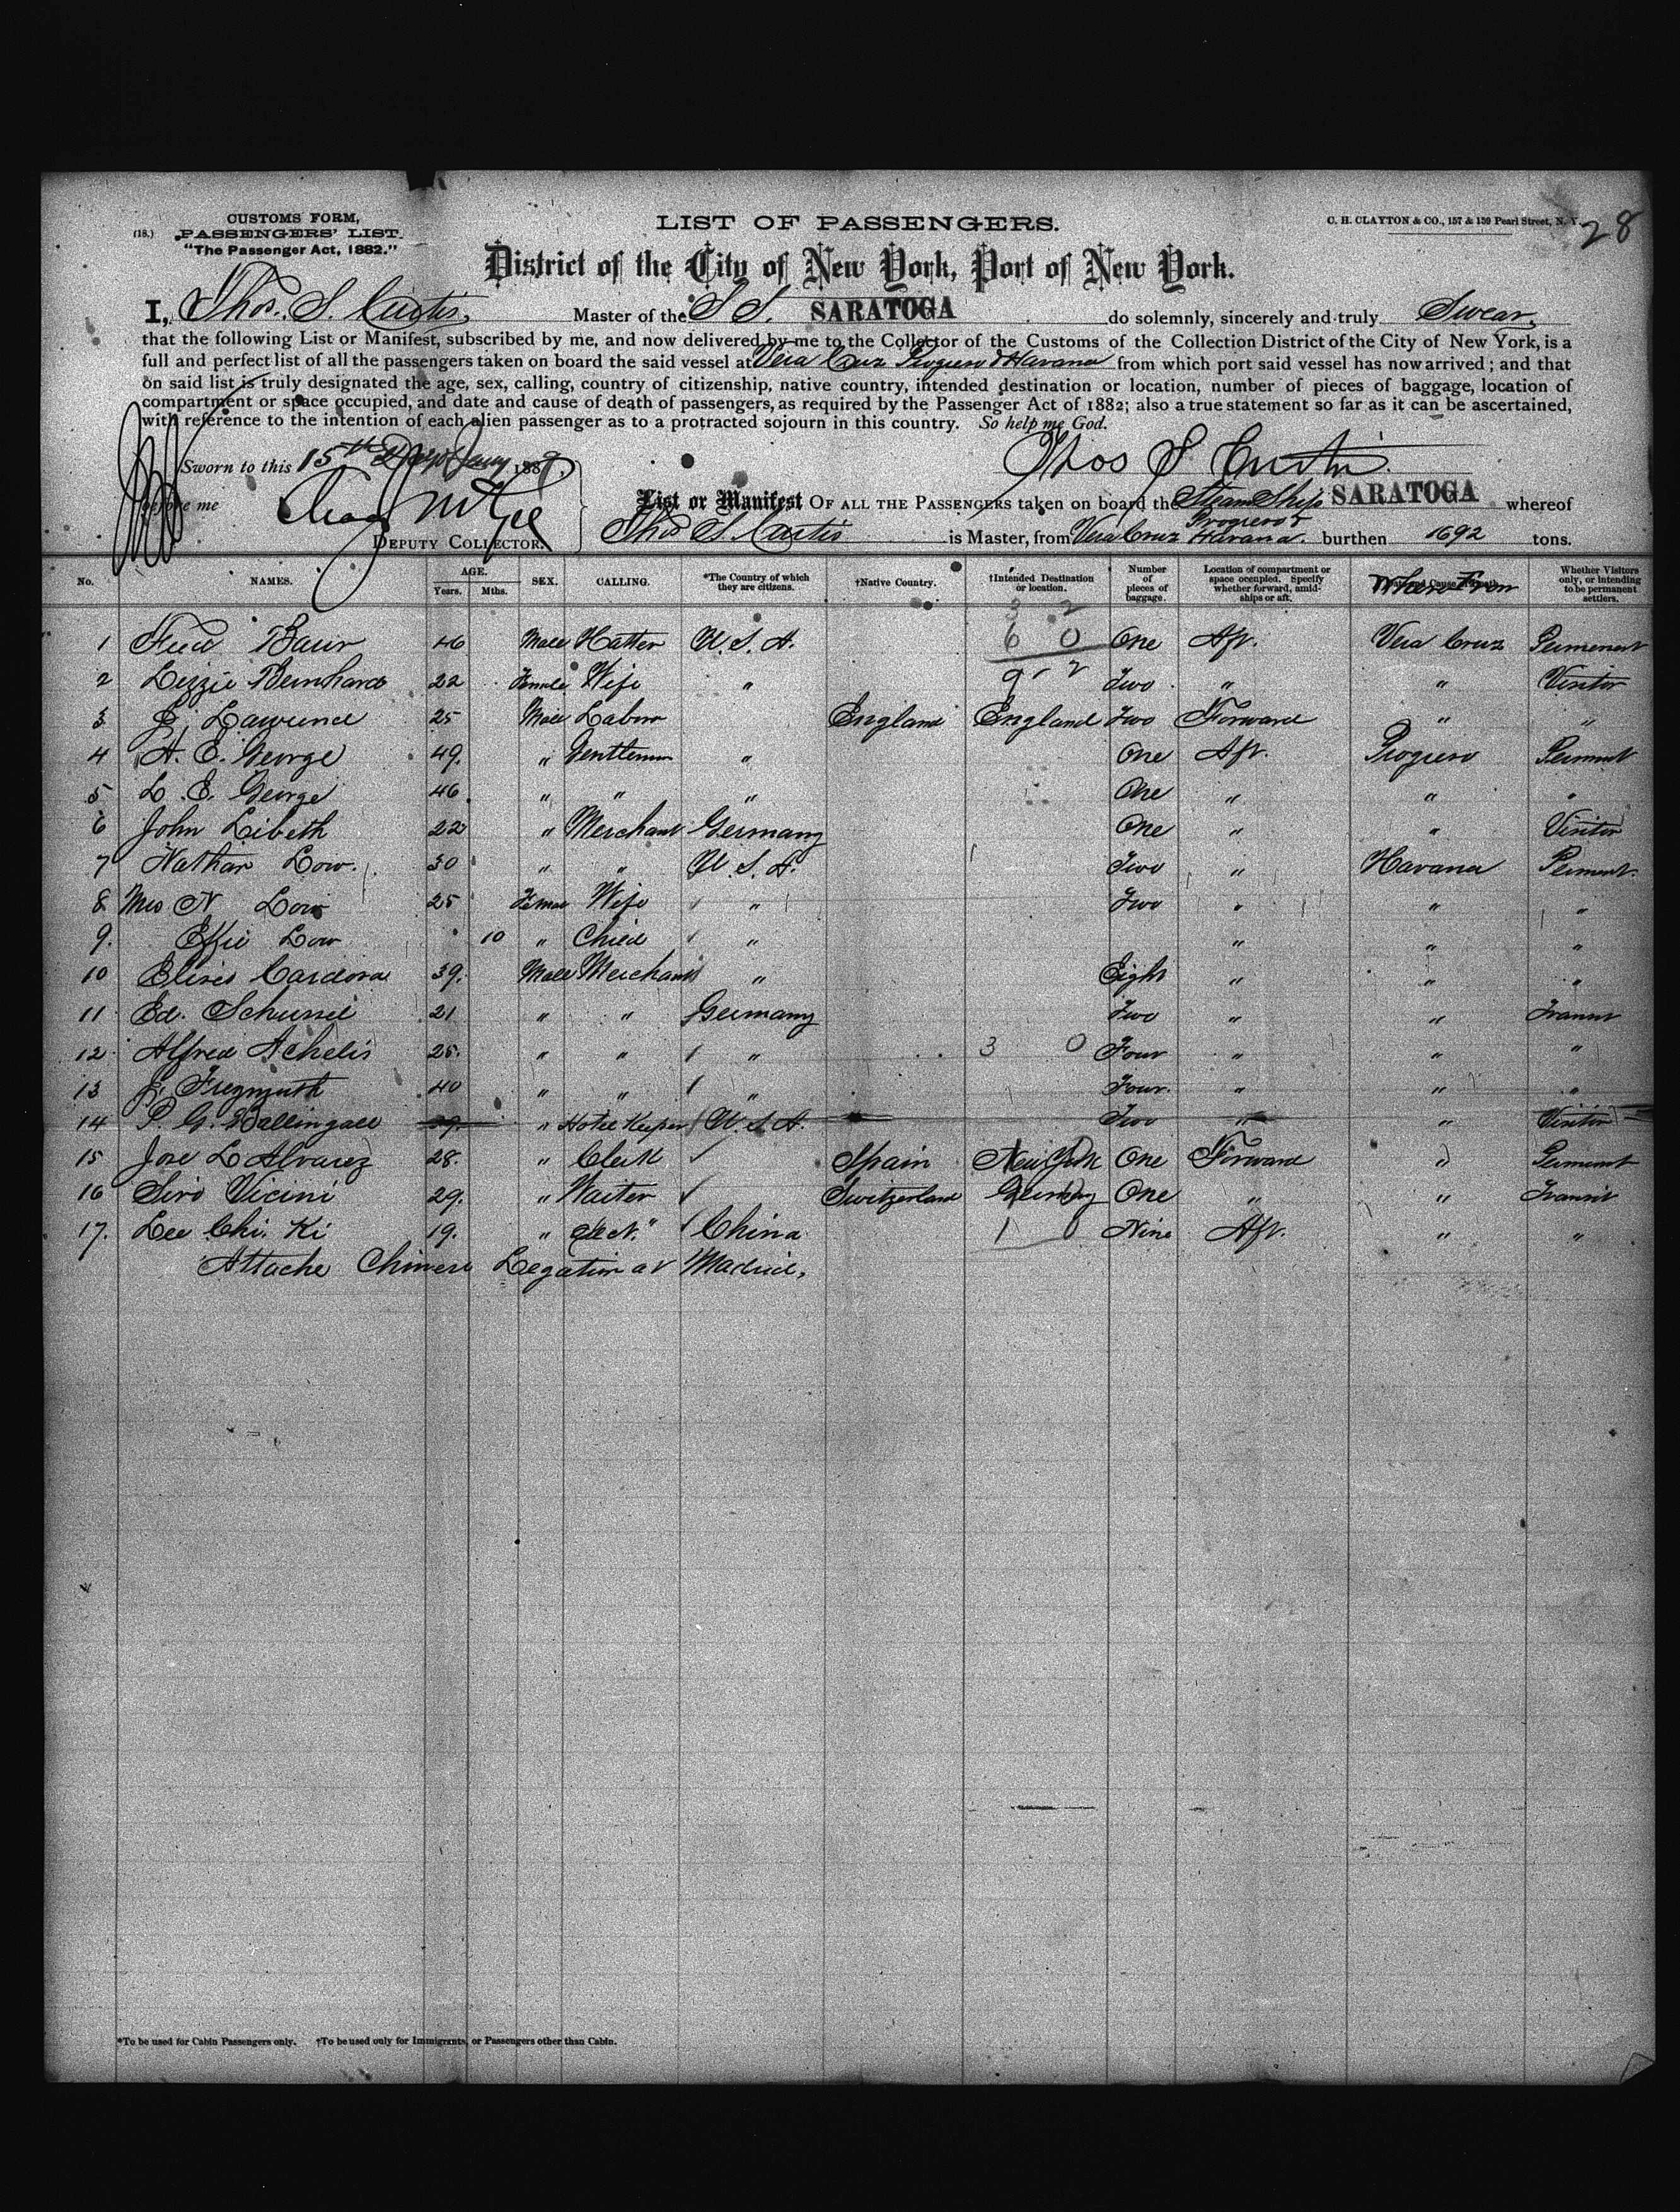 CUSTOMS FORM,
(18.) PASSENGERS' LIST.
"The Passenger Act, 1882."
LIST OF PASSENGERS.
C. H. CLAYTON & CO., 157 & 159 Pearl Street, N. Y.
28
District of the City of New York, Port of New York.
I, Thos. S. Curtis, Master of the S S. SARATOGA do solemnly, sincerely and truly Swear,
that the following List or Manifest, subscribed by me, and now delivered by me to the Collector of the Customs of the Collection District of the City of New York, is a
full and perfect list of all the passengers taken on board the said vessel at Vera Cruz Progreso & Havana from which port said vessel has now arrived; and that
on said list is truly designated the age, sex, calling, country of citizenship, native country, intended destination or location, number of pieces of baggage, location of
compartment or space occupied, and date and cause of death of passengers, as required by the Passenger Act of 1882; also a true statement so far as it can be ascertained,
with reference to the intention of each alien passenger as to a protracted sojourn in this country. So help me God.
Sworn to this 15th Day Jany 1889
Thos S Curtis
before me
DEPUTY COLLECTOR.
List or Manifest OF ALL THE PASSENGERS taken on board the Steam Ship SARATOGA whereof
Thos S. Curtis is Master, from Vera Cruz Progreso & Havana. burthen 1692 tons.
No. NAMES. AGE. Years. Mths. SEX. CALLING. *The Country of which they are citizens. †Native Country. †Intended Destination or location. Number of pieces of baggage. Location of compartment or space occupied. Specify whether forward, amidships or aft. Where From Whether Visitors only, or intending to be permanent settlers.
3 2
1 Fred Baur 46 Male Hatter U. S. A. 6 0 One Aft. Vera Cruz Permenent
2 Lizzie Bernhard 22 Female Wife " 9 2 Two " " Visitor
3 J. Lawrence 25 Male Labor England England Two Forward " "
4 A. E. George 49. " Gentleman " One Aft. Progreso Permnt
5 L. E. George 46. " " " One " " "
6 John Libeth 22 " Merchant Germany One " " Visitor
7 Nathan Low. 30 " " U. S. A. Two " Havana Perment.
8 Mrs N Low 25 Female Wife " Two " " "
9. Effie Low 10 " Child " " " "
10 Eliseo Cardova 39. Male Merchant " Eight " " "
11 Ed. 21 " " Germany Two " " Transit
12 Alfred Achelis 25. " " " 3 0 Four " " "
13 J. Freymuth 40 " " " Four. " " "
14 P. G. Ballingall 39. " Hotel Keeper U. S. A. Two " " Visitor
15 Jose L Alvarez 28. " Clerk Spain New York One Forward " Perment
16 Siro Vicini 29. " Waiter Switzerland One " " Transit
17. Lee Chi. Ki 19. " China 1 0 Nine Aft. " "
Attache Chinese Legation at Madrid,
*To be used for Cabin Passengers only. †To be used only for Immigrants, or Passengers other than Cabin.